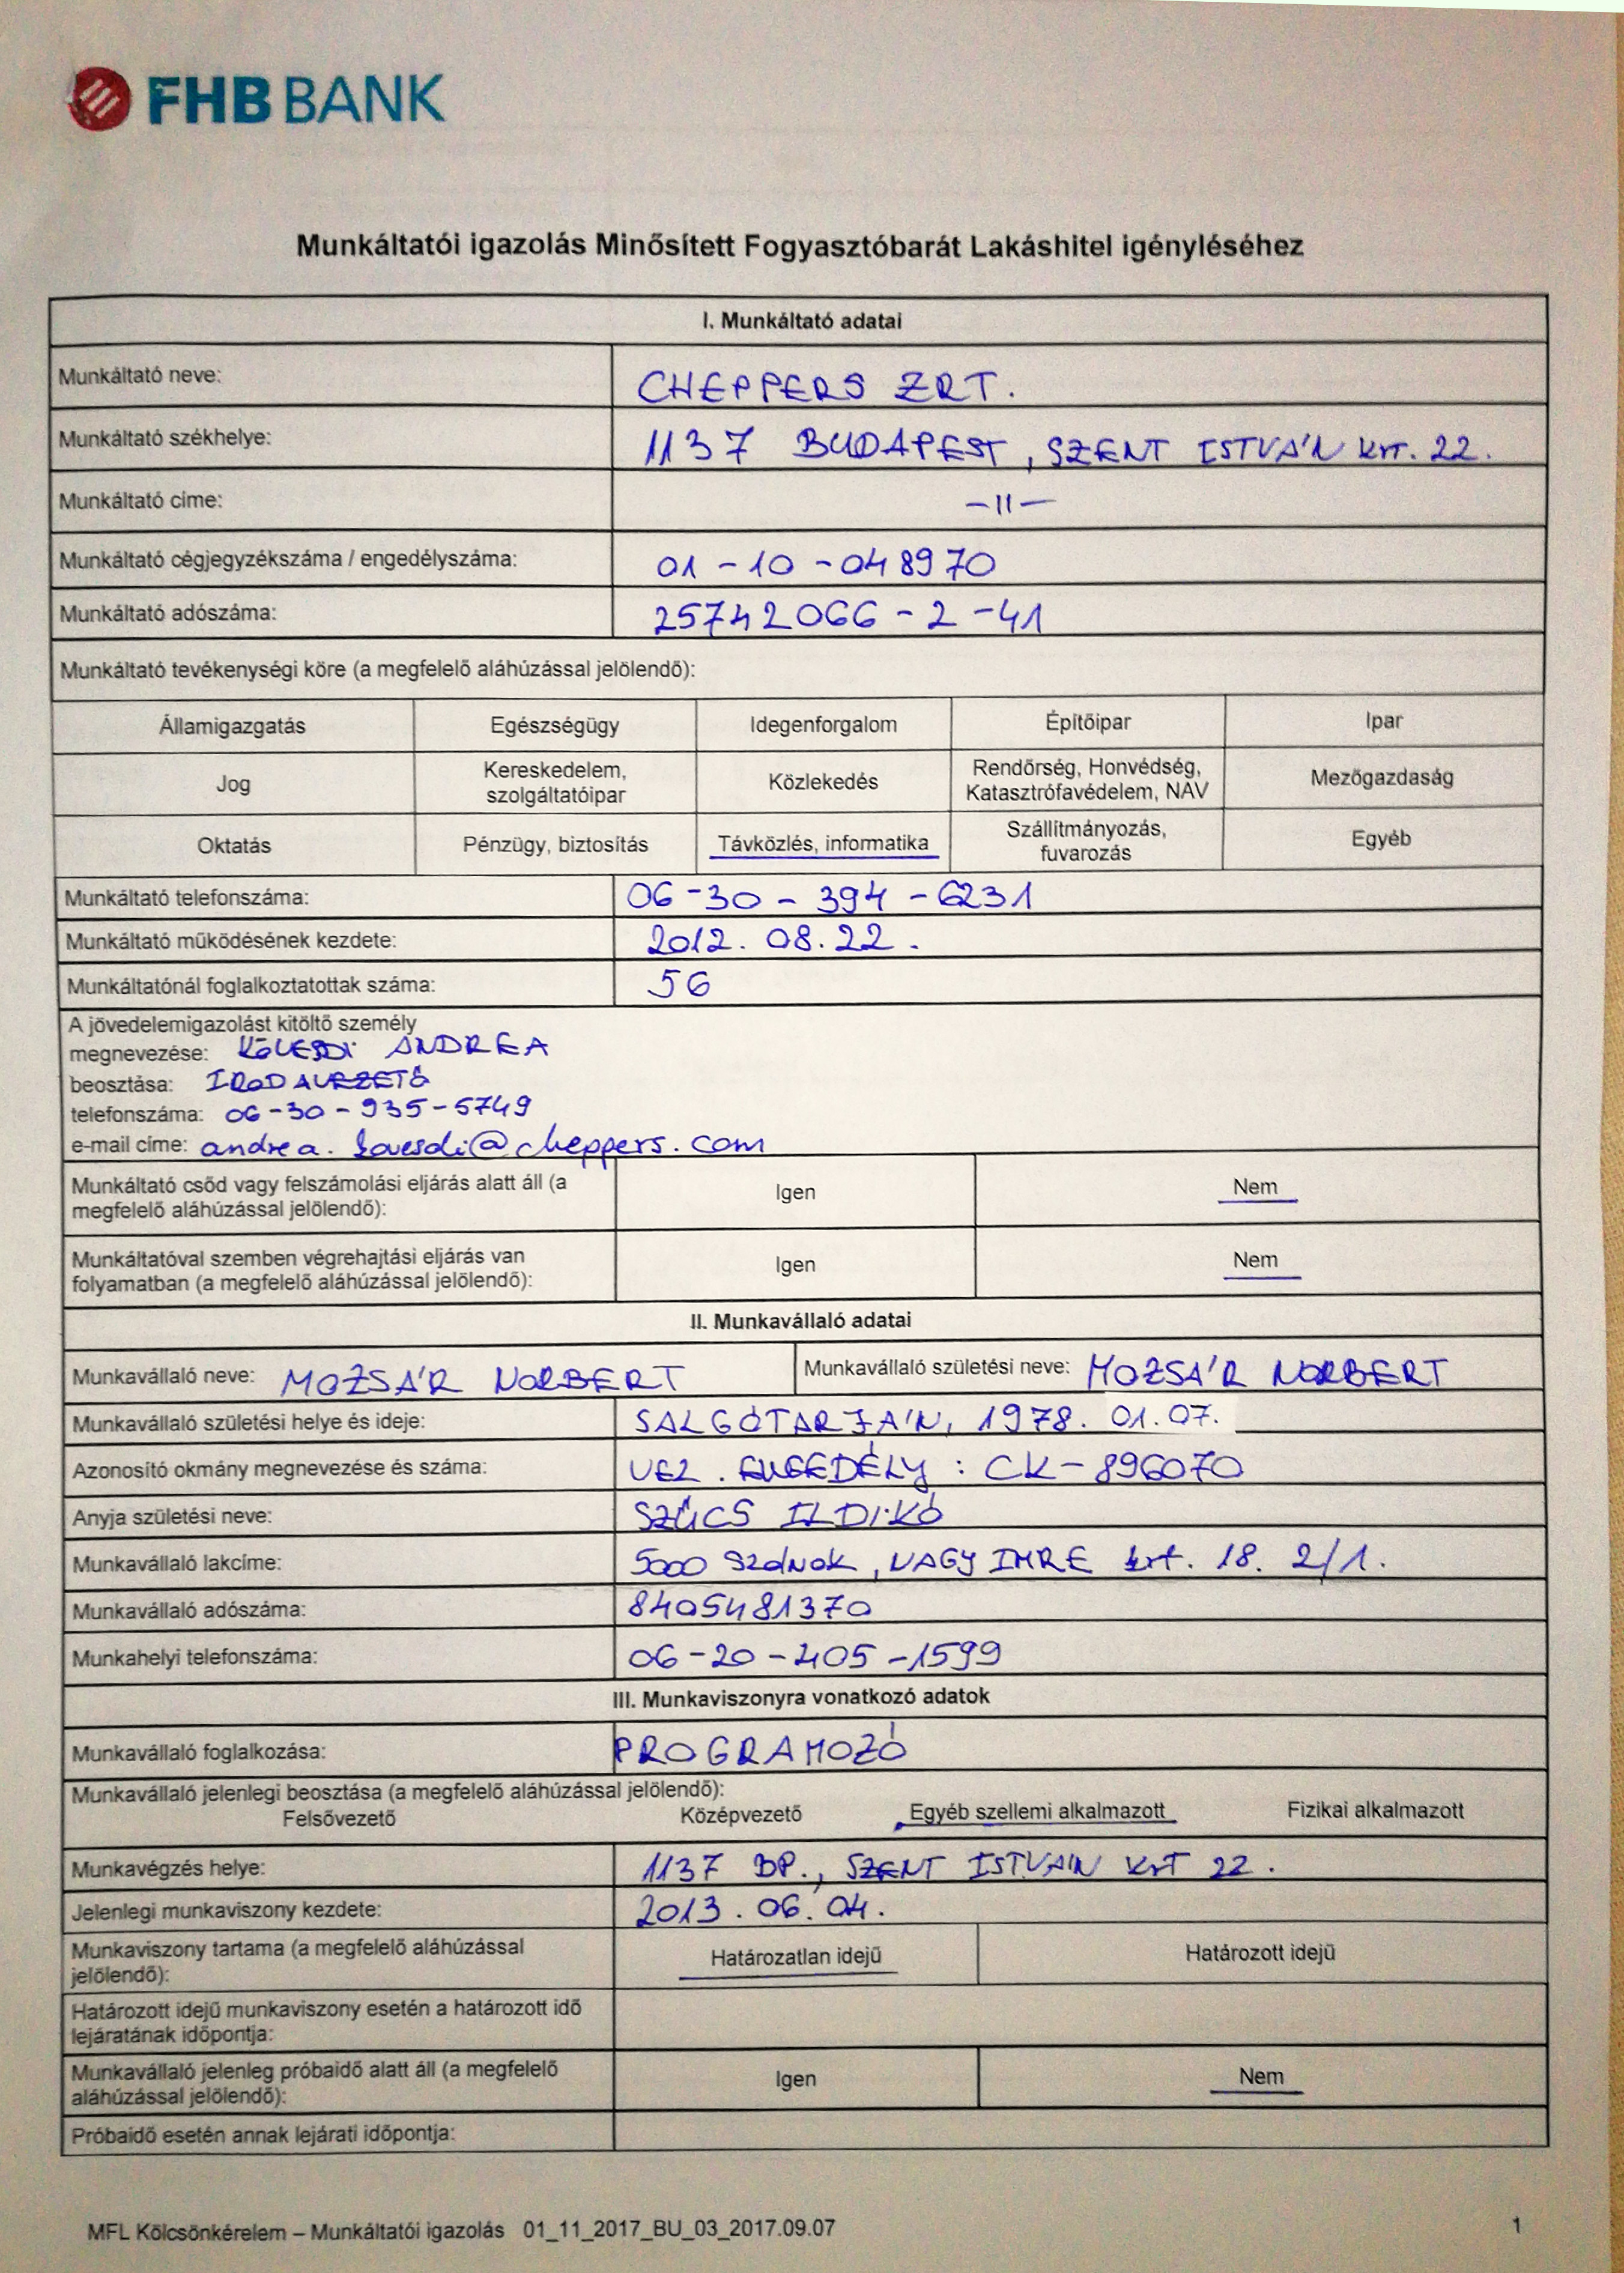 FHB BANK
Munkáltatói igazolás Minősített Fogyasztóbarát Lakáshitel igényléséhez
I. Munkáltató adatai
Munkáltató neve: CHEPPERS ZRT.
Munkáltató székhelye: 1137 BUDAPEST, SZENT ISTVÁN krt. 22.
Munkáltató címe: -||-
Munkáltató cégjegyzékszáma / engedélyszáma: 01-10-048970
Munkáltató adószáma: 25742066-2-41
Munkáltató tevékenységi köre (a megfelelő aláhúzással jelölendő):
Államigazgatás Egészségügy Idegenforgalom Építőipar Ipar
Jog Kereskedelem, szolgáltatóipar Közlekedés Rendőrség, Honvédség, Katasztrófavédelem, NAV Mezőgazdaság
Oktatás Pénzügy, biztosítás Távközlés, informatika Szállítmányozás, fuvarozás Egyéb
Munkáltató telefonszáma: 06-30-394-6231
Munkáltató működésének kezdete: 2012. 08. 22.
Munkáltatónál foglalkoztatottak száma: 56
A jövedelemigazolást kitöltő személy
megnevezése: KÖVESDI ANDREA
beosztása: IRODAVEZETŐ
telefonszáma: 06-30-935-5749
e-mail címe: andrea.kovesdi@cheppers.com
Munkáltató csőd vagy felszámolási eljárás alatt áll (a Igen Nem
megfelelő aláhúzással jelölendő):
Munkáltatóval szemben végrehajtási eljárás van Igen Nem
folyamatban (a megfelelő aláhúzással jelölendő):
II. Munkavállaló adatai
Munkavállaló neve: MOZSÁR NORBERT Munkavállaló születési neve: MOZSÁR NORBERT
Munkavállaló születési helye és ideje: SALGÓTARJÁN, 1978. 01.07.
Azonosító okmány megnevezése és száma: VEZ. ENGEDÉLY: CK-896070
Anyja születési neve: SZŰCS ILDIKÓ
Munkavállaló lakcíme: 5000 Szolnok, NAGY IMRE krt. 18. 2/1.
Munkavállaló adószáma: 8405481370
Munkahelyi telefonszáma: 06-20-405-1599
III. Munkaviszonyra vonatkozó adatok
Munkavállaló foglalkozása: PROGRAMOZÓ
Munkavállaló jelenlegi beosztása (a megfelelő aláhúzással jelölendő):
Felsővezető Középvezető Egyéb szellemi alkalmazott Fizikai alkalmazott
Munkavégzés helye: 1137 BP., SZENT ISTVÁN KRT 22.
Jelenlegi munkaviszony kezdete: 2013. 06. 04.
Munkaviszony tartama (a megfelelő aláhúzással Határozatlan idejű Határozott idejű
jelölendő):
Határozott idejű munkaviszony esetén a határozott idő
lejáratának időpontja:
Munkavállaló jelenleg próbaidő alatt áll (a megfelelő Igen Nem
aláhúzással jelölendő):
Próbaidő esetén annak lejárati időpontja:
MFL Kölcsönkérelem – Munkáltatói igazolás 01_11_2017_BU_03_2017.09.07 1